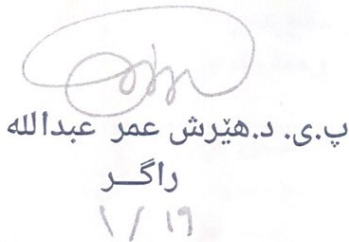 پ.ی. د.هێرش عمر عبدالله
راگــر
١ / ١٩